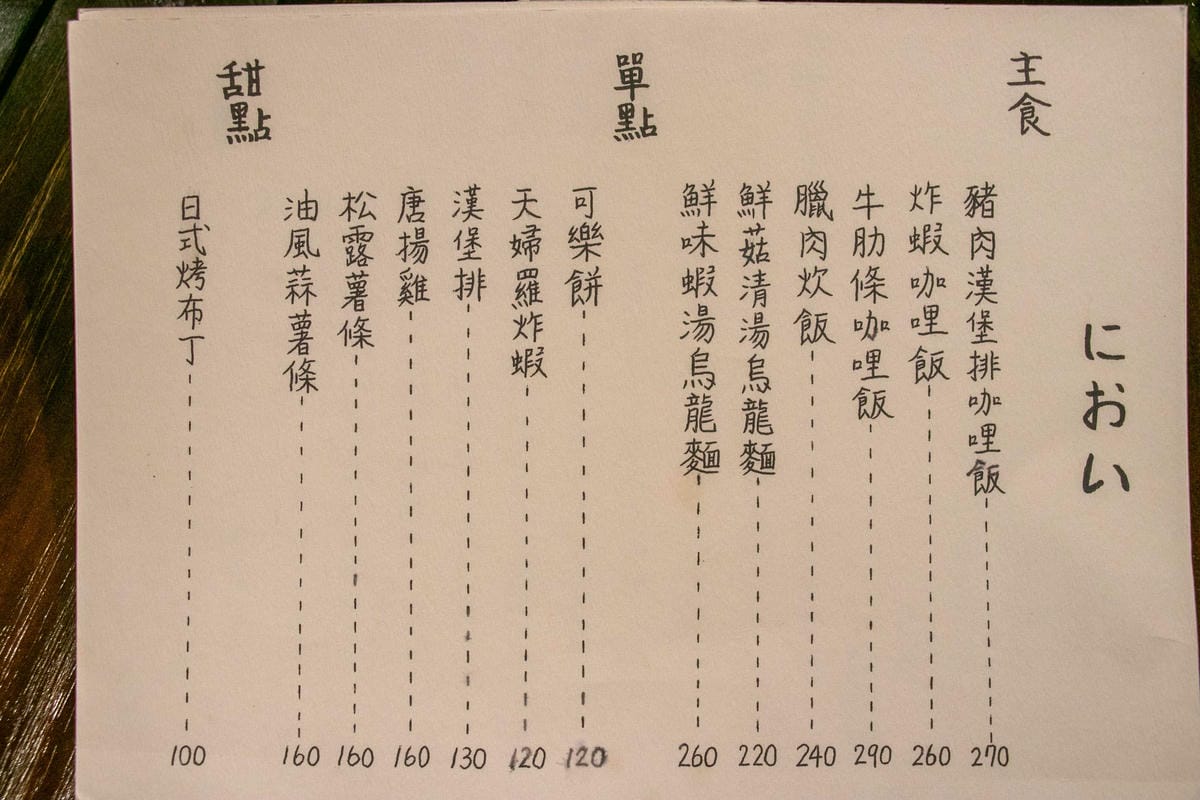 におい
主食
豬肉漢堡排咖哩飯 270
炸蝦咖哩飯 260
牛肋條咖哩飯 290
臘肉炊飯 240
鮮菇清湯烏龍麵 220
鮮味蝦湯烏龍麵 260
單點
可樂餅 120
天婦羅炸蝦 120
漢堡排 130
唐揚雞 160
松露薯條 160
油風蒜薯條 160
甜點
日式烤布丁 100